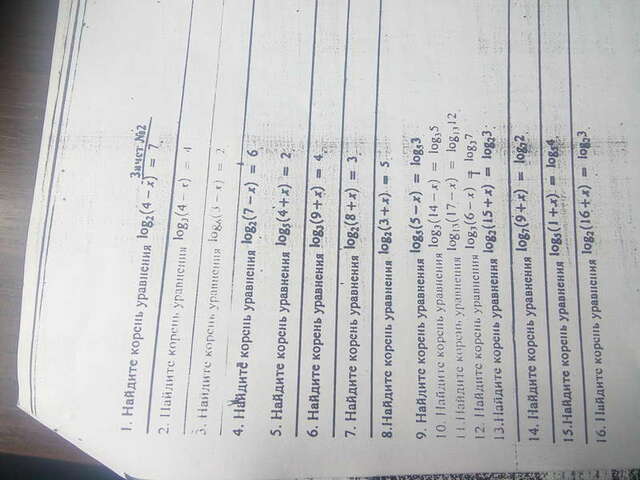 Зачет №2
1. Найдите корень уравнения log₂(4 − x) = 7
2. Найдите корень уравнения log₃(4 − x) = 4
3. Найдите корень уравнения
4. Найдите корень уравнения log₂(7 − x) = 6
5. Найдите корень уравнения log₅(4 + x) = 2
6. Найдите корень уравнения log₃(9 + x) = 4
7. Найдите корень уравнения log₂(8 + x) = 3
8.Найдите корень уравнения log₂(3 + x) = 5
9. Найдите корень уравнения log₅(5 − x) = log₅3
10. Найдите корень уравнения log₃(14 − x) = log₃5
11.Найдите корень уравнения log₁₃(17 − x) = log₁₃12
12. Найдите корень уравнения log₃(6 − x) = log₃7
13.Найдите корень уравнения log₂(15 + x) = log₂3
14. Найдите корень уравнения log₇(9 + x) = log₇2
15.Найдите корень уравнения log₅(1 + x) = log₅4
16. Найдите корень уравнения log₂(16 + x) = log₂3